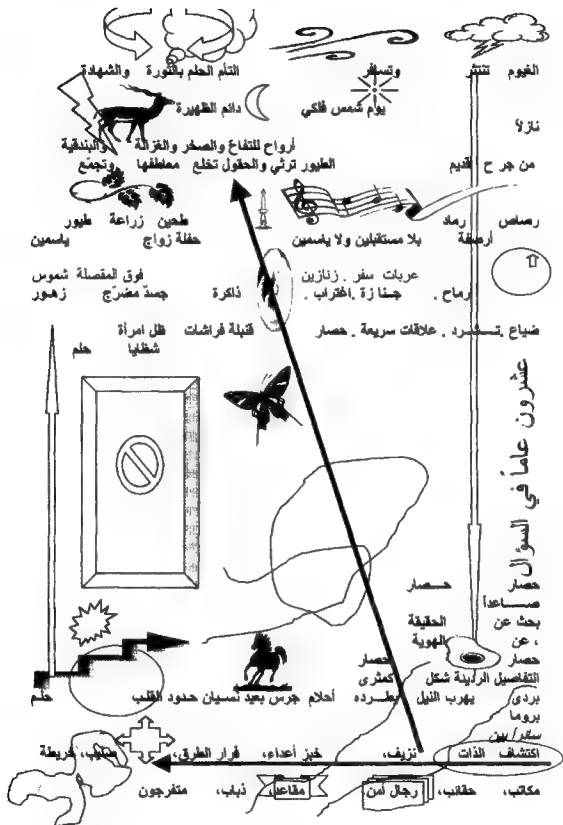 الغيوم تنتثر وتسافر التأم الحلم بالثورة والشهادة
يوم شمس فلكي دائم الظهيرة
نازلاً
أرواح للتفاح والصخر والغزالة والبندقية
من جرح قديم الطيور ترثي والحقول تخلع معاطفها وتجمّع
رصاص رماد طحين زراعة طيور
أرصفة بلا مستقبلين ولا ياسمين حفلة زواج ياسمين
عربات سفر . زنازين فوق المقصلة شموس
رماح . جنازة . اغتراب . ذاكرة جسدٌ مضرّج زهور
ضياع . تشرد . علاقات سريعة . حصار قنبلة فراشات ظل امرأة
شظايا حلم
عشرون عاماً في السؤال
حصار حصار
صاعداً
بحث عن الحقيقة
، عن الهوية
حصار حصار
التفاصيل الرديئة شكل كمثرى
بردى يهرب النيل يطرده أحلام جرس بعيد نسيان حدود القلب حلم
بروما
سافر/بين
اكتشاف الذات نزيف، خبز أعداء، قرار الطرق، صليب، خريطة
مكاتب، حقائب، رجال أمن، مقاعد، ذباب، متفرجون